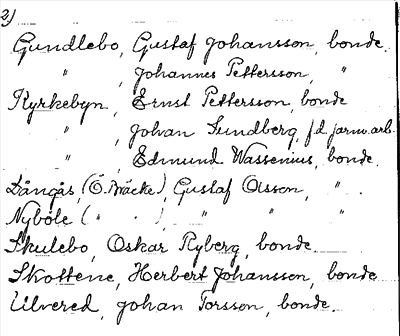 2)
Gundlebo, Gustaf Johansson, bonde.
" , Johannes Pettersson, "
Kyrkebyn, Ernst Pettersson, bonde
" , Johan Sundberg, f.d. jarnv.arb.
" , Edmund Wassenius, bonde.
Långås, (Ö. Bäcke), Gustaf Olsson, " .
Nyböle ( " . ), " " .
Skulebo, Oskar Ryberg, bonde.
Skottene, Herbert Johansson, bonde
Ulvered, Johan Torsson, bonde.